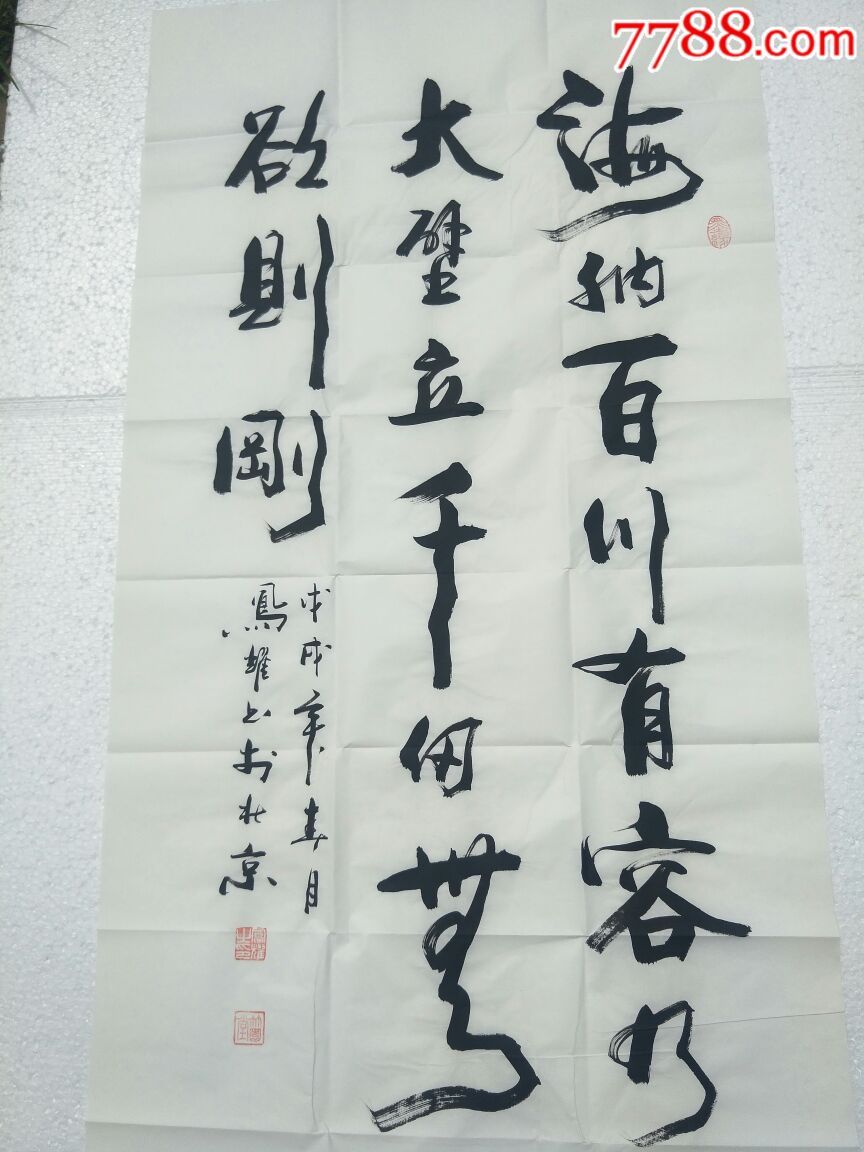 7788.com
海納百川有容乃
大壁立千仞無
欲則剛
戊戌年春月
鳳雄書於北京